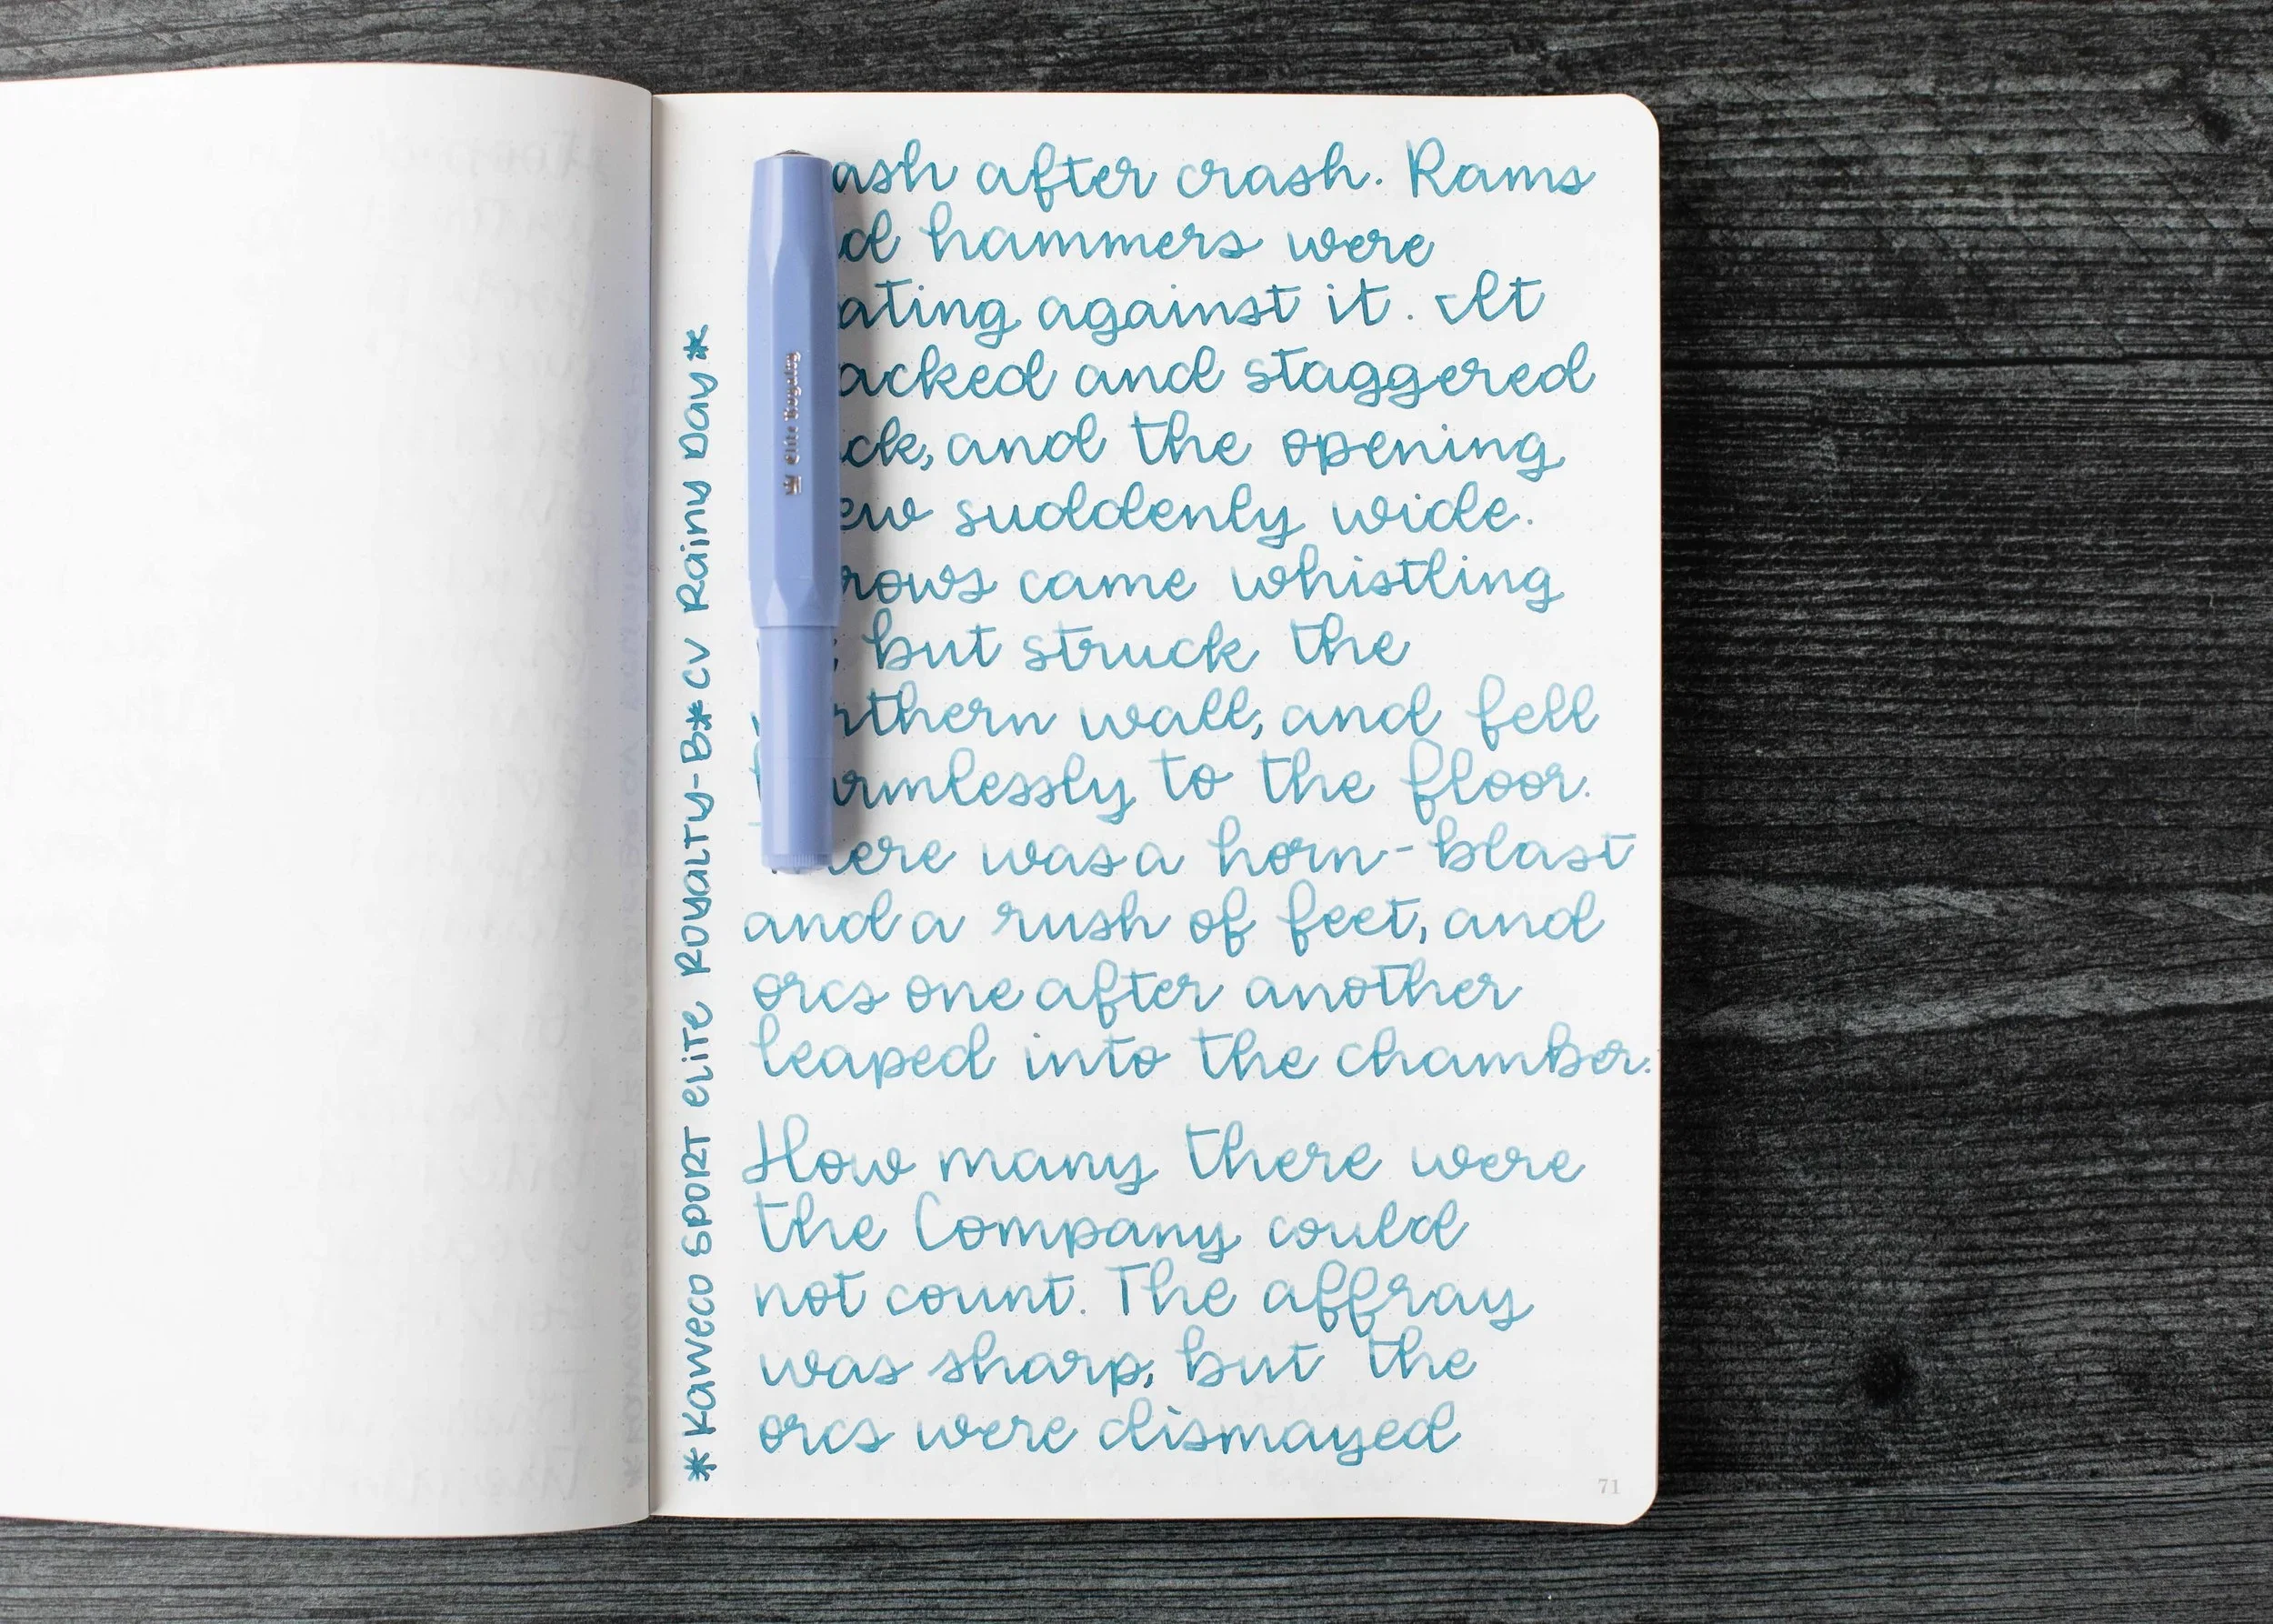 ash after crash. Rams
d hammers were
ating against it. It
acked and staggered
ck, and the opening
ew suddenly wide.
rows came whistling
; but struck the
rthern wall, and fell
armlessly to the floor.
ere was a horn-blast
and a rush of feet, and
orcs one after another
leaped into the chamber.
How many there were
the Company could
not count. The affray
was sharp, but the
orcs were dismayed
71
*Kaweco Sport Elite Royalty-B*CV Rainy Day*
Elite Royalty